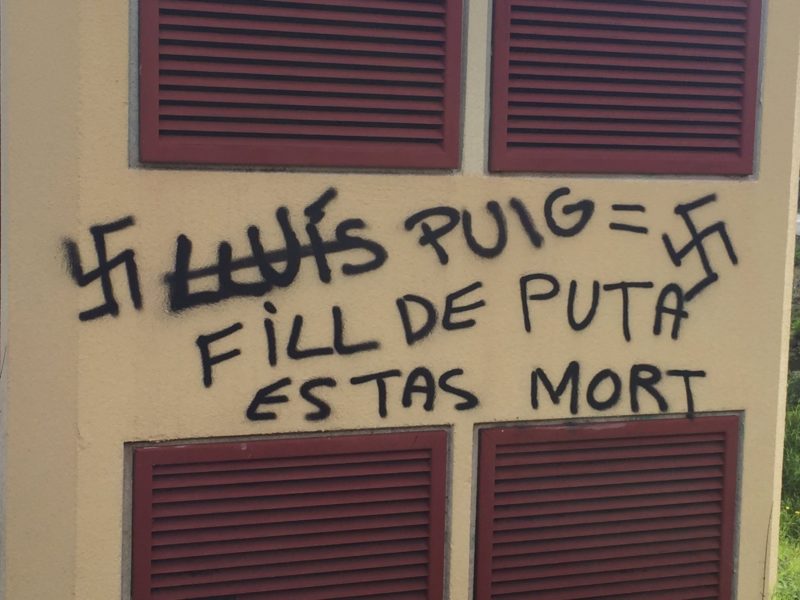 LLUÍS PUIG =
FILL DE PUTA
ESTAS MORT